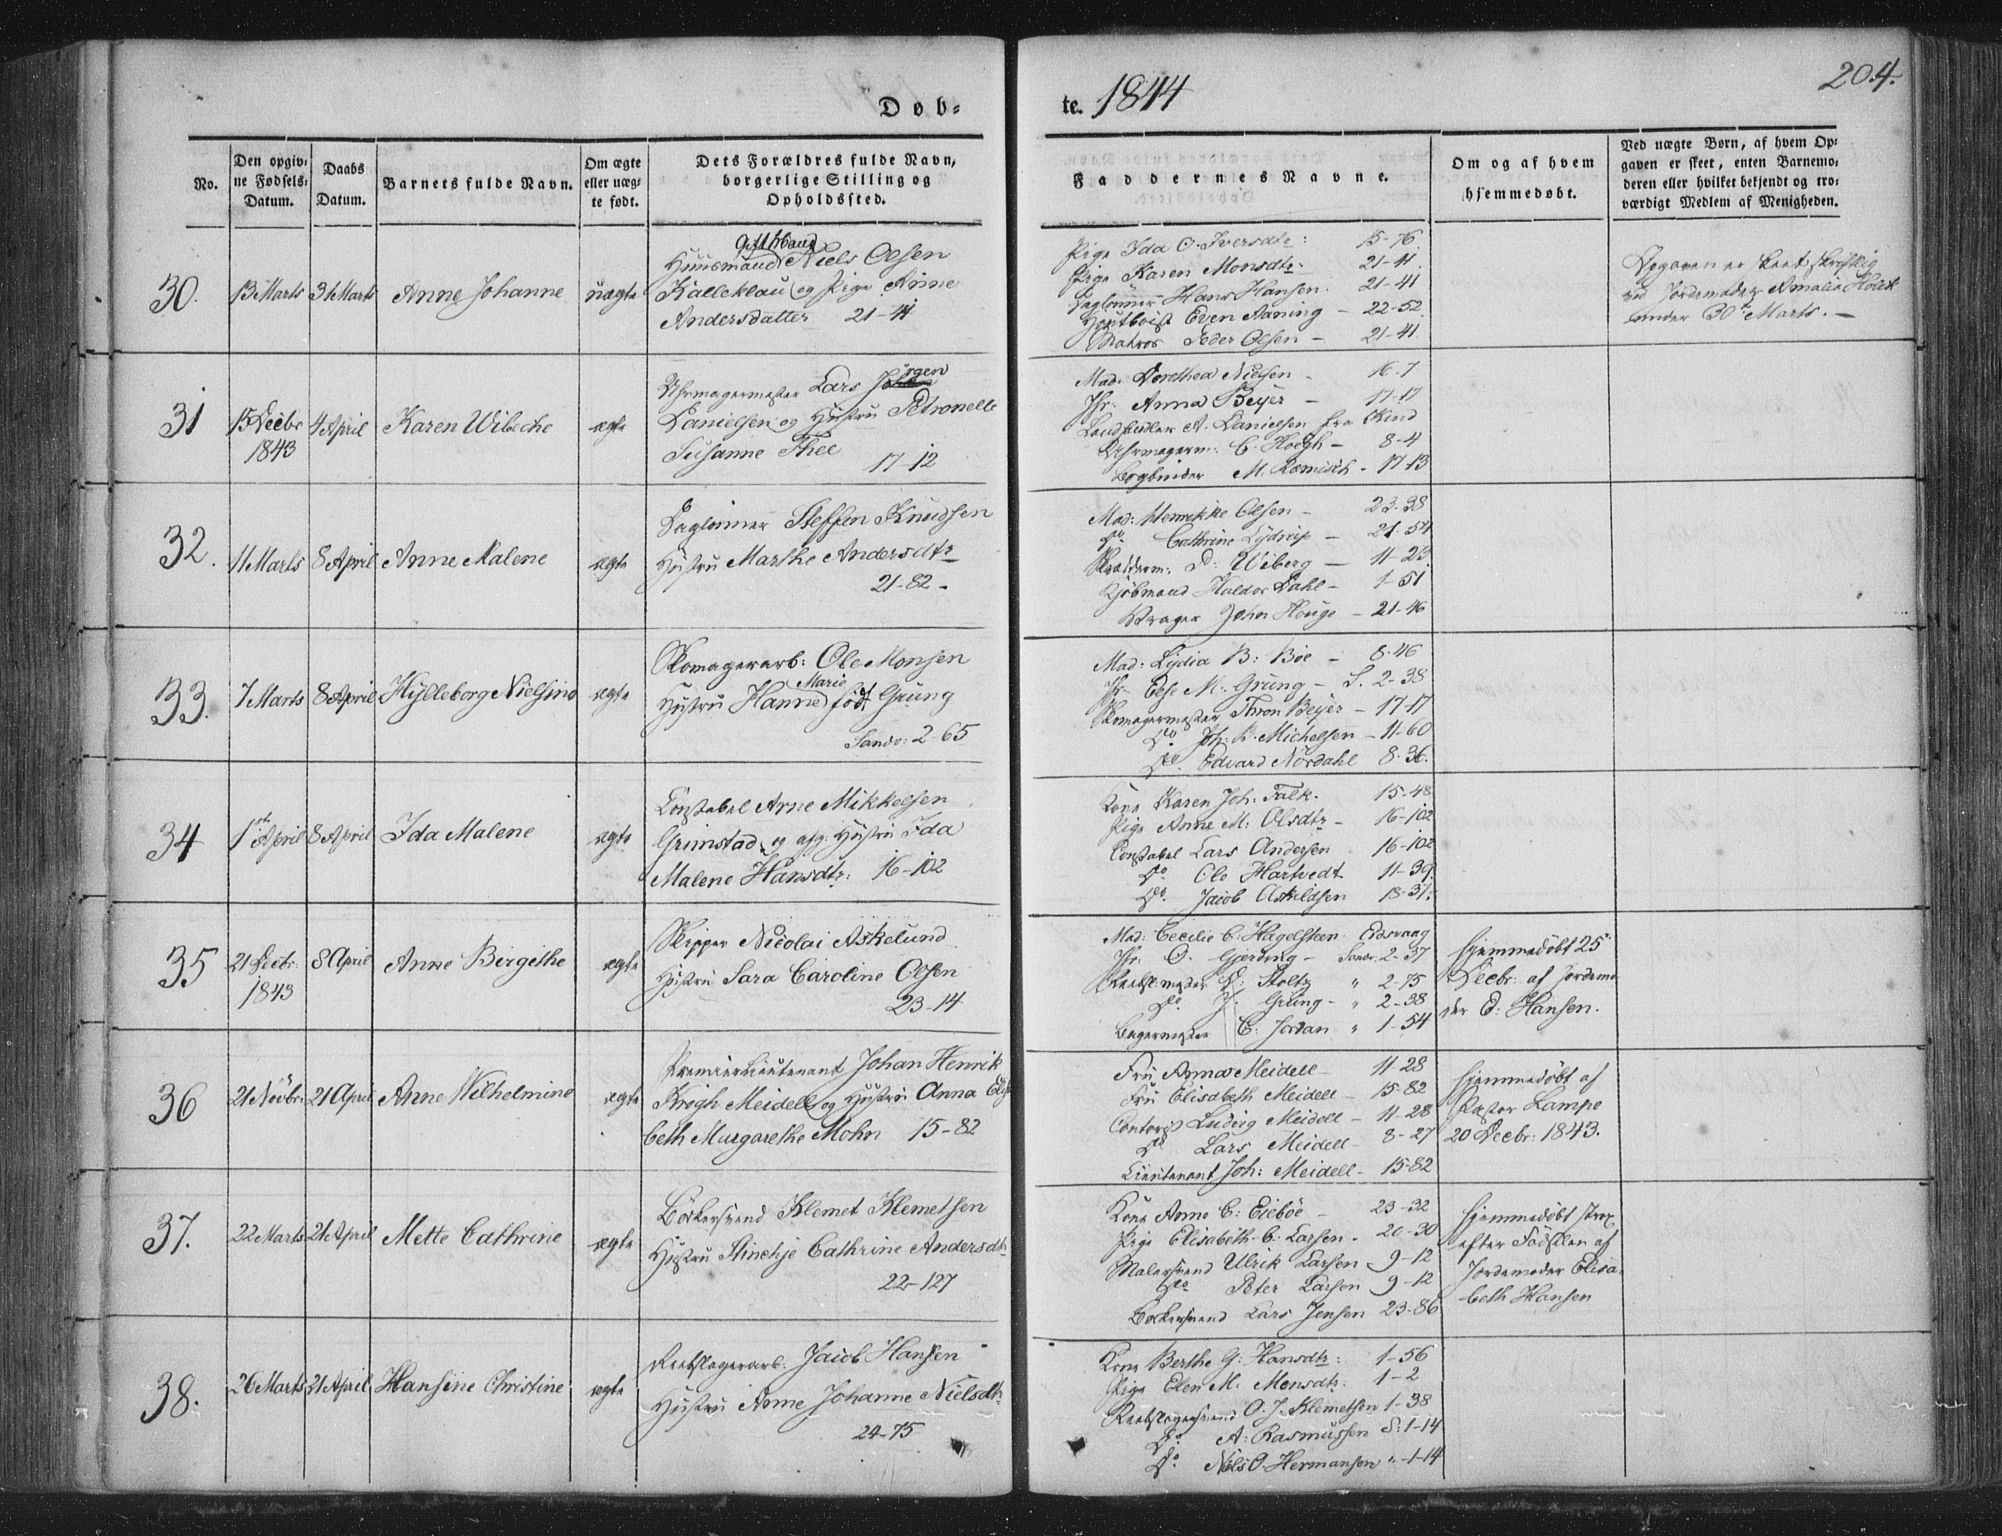 204.
Døb-
te. 1844
No.
Den opgiv-
ne Fødsels-
Datum.
Daabs
Datum.
Barnets fulde Navn.
Om ægte
eller uæg-
te født.
Dets Forældres fulde Navn,
borgerlige Stilling og
Opholdssted.
Faddernes Navne.
Om og af hvem
hjemmedøbt.
Ved uægte Børn, af hvem Op-
gaven er skeet, enten Barnemo-
deren eller hvilket bekjendt og tro-
værdigt Medlem af Menigheden.
30.
13 Marts
31 Marts
Anne Johanne
uægte
Huusmand Niels Olsen
Kalleklau og Pige Anne
Andersdatter 21-41
Pige Ida O. Iversdtr: 15-76.
Pige Karen Monsdtr: 21-41.
Daglønner Hans Hansen. 21-41
Houtboist Even Aaning - 22-52.
Matros Peder Olsen - 21-41.
Opgaven er skeet skriftlig
ved Jordemoder Amalia Holst
under 30 Marts. -
31
15 Decbr
1843
4 April
Karen Wibeche
ægte
Uhrmagermester Lars Jørgen
Danielsen og Hustru Petronelle
Susanne Thee
17-12
Mad: Dorothea Nielsen - 16-7
Jfr: Anna Beyer - 17-17
A. Danielsen fra Kind
Uhrmagerm: C. Hoegh - 8-4
Bogbinder M. Ræmisch - 17-13
32.
11 Marts
8 April
Anne Malene
ægte
Daglønner Steffen Knudsen
Hustru Marthe Andersdtr
21-82 -
Mad: Olsen - 23-38
Do Cathrine - 21-54
Skrædderm: D: Wiberg - 11-23.
Kjøbmand Haldor Dahl - 1-51
Vrager John Houge - 21-46
33.
7 Marts
8 April
Hylleborg Nielsine
ægte
Skomagerarb: Ole Monsen
Marie
Hustru Hanne født Grung
Sandv: 2-65
Mad: Lydia B: Bøe - 8-46
Jfr: Else M: Grung - S. 2-38
Skomagermester Thron Beyer - 17-17
Do Joh: R. Michelsen - 11-60
Do. Edvard Nordahl 8-36.
34
1st April
8 April
Ida Malene
ægte
Constabel Arne Mikkelsen
Grimstad, og afg: Hustru Ida
Malene Hansdtr: 16-102
Kone Karen Joh: Falk. 15-48
Pige Anne M: Olsdtr - 16-102
Constabel Lars Andersen 16-102
Do Ole Hartvedt 11-39.
Do. Jacob Askildsen 13-37.
35
21 Decbr:
1843
8 April
Anne Birgithe
ægte
Skipper Nicolai Askelund
Hustru Sara Caroline Olsen
23-14
Mad: Cecilie C: Hagelsteen Eidsvaag
Jfr: D. Gjerding - Sandv: 2-37
Rebsl:mester D: Stoltz " 2-75
Do J: Grung - " 2-38
Bagermester C: Jordan " 1-54
Hjemmedøbt 25
Decbr: af Jordemo
der E: Hansen.
36
21 Novbr:
21 April
Anne Wilhelmine
ægte
Premierlieutenant Johan Henrik
Krogh Meidell og Hustru Anna Elisa
beth Margarethe Mohn 15-82
Fru Anna Meidell - 11-28
Fru Elisabeth Meidell - 15-82
Contorist Ludvig Meidell - 11-28
Do Lars Meidell - 8-27
Lieutenant Joh: Meidell - 15-82
Hjemmedøbt af
Pastor Lampe
20 Decbr: 1843.
37.
22 Marts
21 April
Mette Cathrine
ægte
Bødkersvend Klemet Klemetsen
Hustru Stinchje Cathrine Andersdtr
22-127
Kone Anne C: Eiebøe - 23-32
Pige Elisabeth C: Larsen - 20-30
Malersvend Ulrik Larsen 9-12
Do Peter Larsen 9-12
Bødkersvend Lars Jensen 23-86
Hjemmedøbt strax
efter Fødselen af
Jordemoder Elisa
beth Hansen
38.
26 Marts
21 April
Hansine Christine
ægte
Rebslagerarb: Jacob Hansen
Hustru Anne Johanne Nielsdtr
24-75
Kone Berthe G: Hansdtr: 1-56
Pige Elen M. Monsdtr: 1-2
Rebslagersvend O. J. Klemetsen 1-38
Do A: Rasmussen S: 1-14
Do. Niels O. Hermansen " 1-14